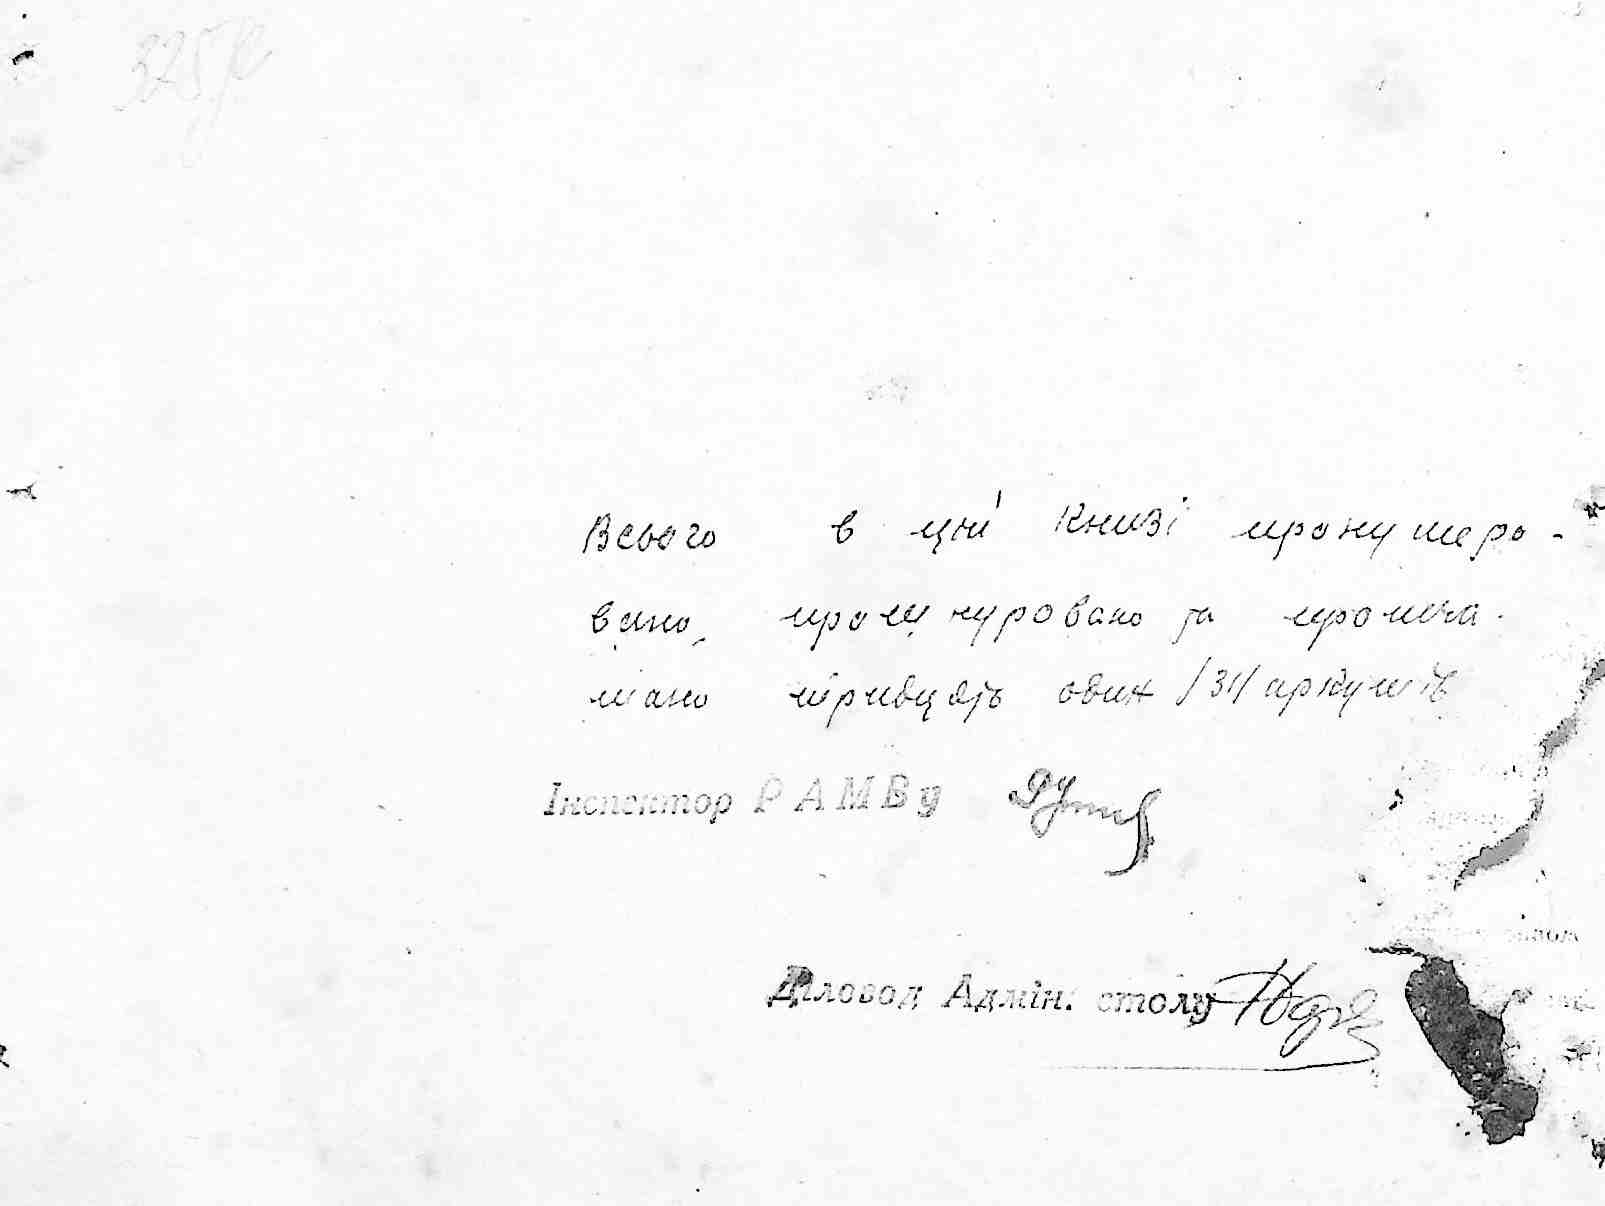 Всього в цій книзі пронумеро-
вано, прошнуровано та пропеча-
тано тридцять один /31/ аркушів
Інспектор РАМВу
Діловод Адмін. столу